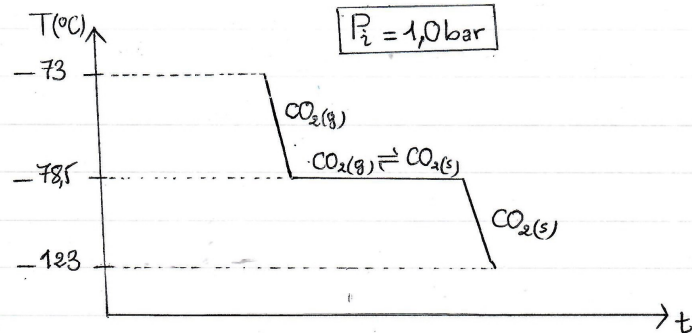 T(°C)
P_i = 1,0 bar
-73
CO₂(g)
CO₂(g) ⇌ CO₂(s)
-78,5
CO₂(s)
-123
t